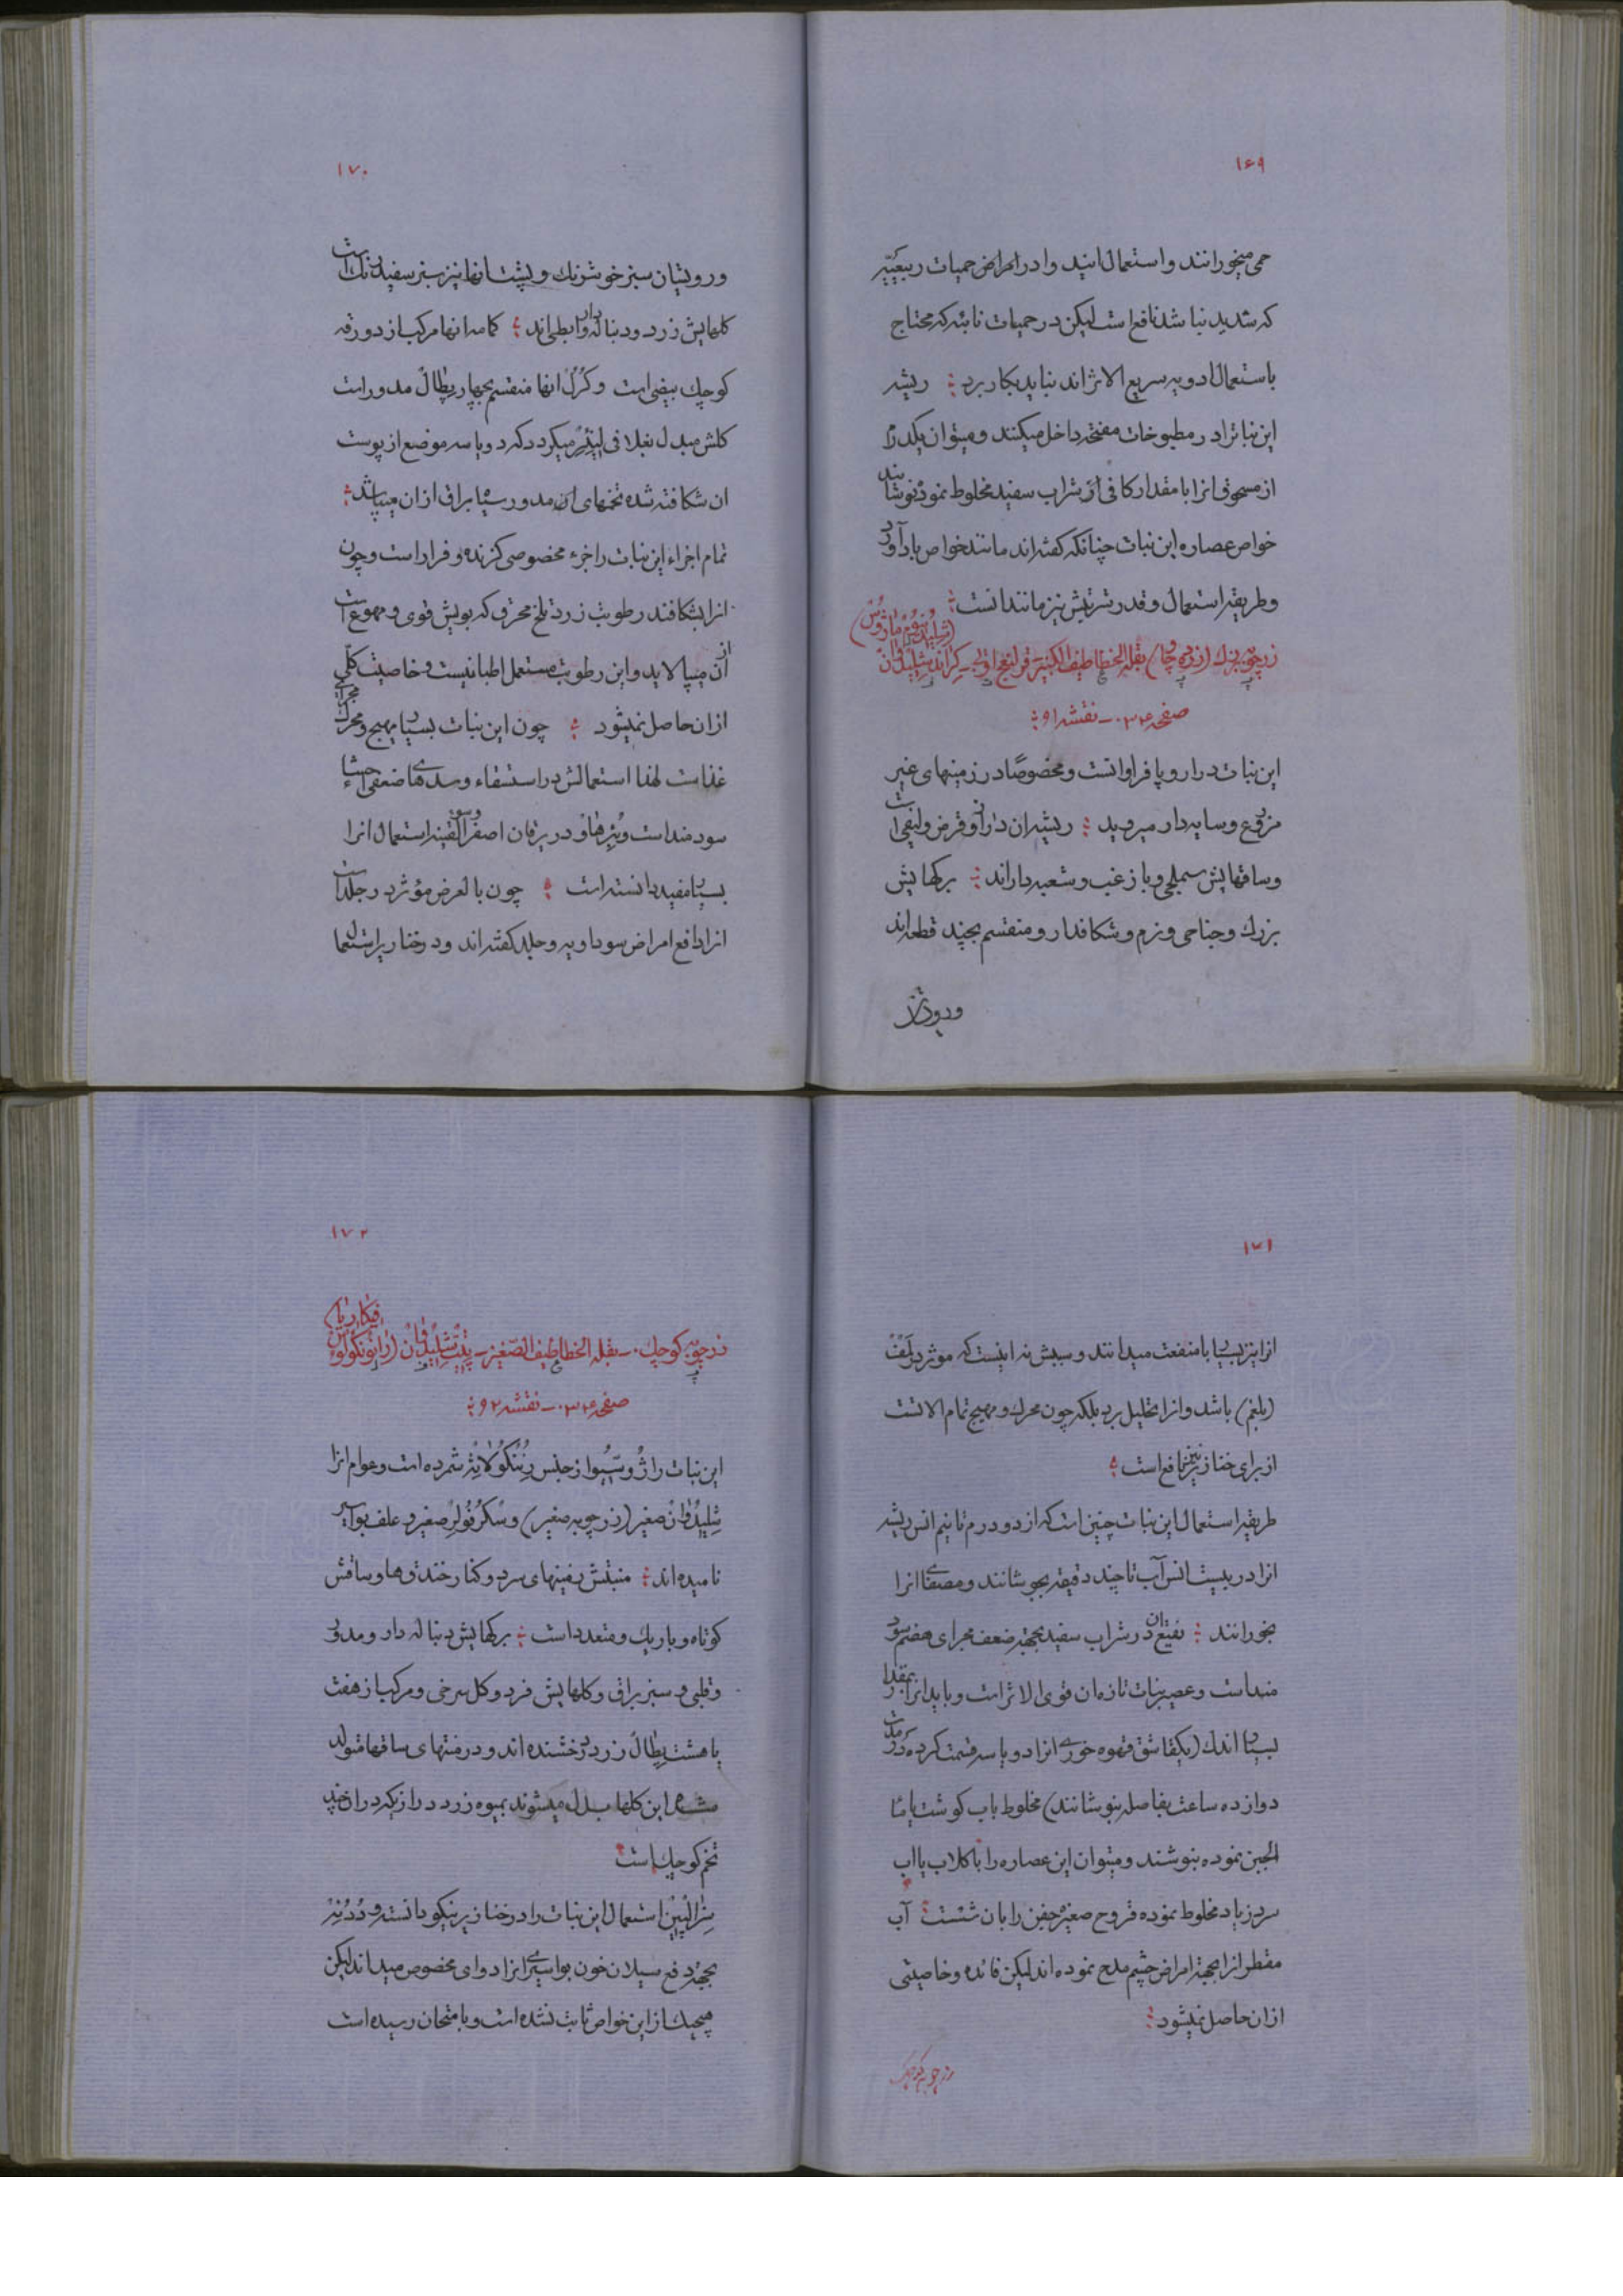 ۱۶۹
حمی میخورانند و استعمال انید وا در امراض حمیات ربیعیّه
که شدید نباشد نافع است لیکن در حمیات نائبه که محتاج
باستعمال ادویه سریع الاثراند نباید بکار برد ؛ ریشه
این نباترا در مطبوخات مفتحه داخل میکنند و میتوان یکدرم
از مسحوق انرا با مقدار کافی از شراب سفید مخلوط نموده نوشانید
خواص عصاره این نبات چنانکه کفته‌اند مانند خواص بادآورد
و طریقه استعمال و قدر شربتش نیز مانند انست ؛
زرچوبه بزرك بقلة الخطاطیف الکبیر
صفحه ۰۳۴ - نقشه ۹۱ ؛
این نبات در اروپا فراوانست و مخصوصًا در زمینهای غیر
مزروع و سایه‌دار میروید ؛ ریشه‌ان دراز و قرمز و لیفی است
و ساقهایش سملجی و با زغب و شعبه‌داراند ؛ برکهایش
بزرك و جناحی و نرم و شکافدار و منقسم بچند قطعه‌اند
۱۷۰
و رویشان سبز خوشرنك و پشت انها نیز سبز سفید رنك است
کلهایش زرد و دنباله‌دار و ابطی‌اند ؛ کاسه انها مرکب از دو ورقه
کوچك بیضی است و کرل انها منقسم بچهار پطال مدور است
کلش مبدل بغلافی میکردد که دو یا سه موضع از پوست
ان شکافته شده تخمهای ان مدور سیاه براق از ان میپاشد ؛
تمام اجزاء این نبات را جزء مخصوصی کزنده و فرار است و چون
انرا بشکافند رطوبت زرد تلخ محرق که بویش قوی و مهوع است
از آن میپالاید و این رطوبت مستعمل اطبا نیست و خاصیت کلّی
ازان حاصل نمیشود ؛ چون این نبات بسیار مهیج و محرك مجرای
غذاست لهذا استعمالش در استسقاء و سدّه‌های ضعفی احشاء
سودمند است و در یرقان اصفر استعمال انرا
بسیار مفید دانسته است ؛ چون بالعرض مؤثر در جلد است
انرا دافع امراض سوداویه و جلد کفته‌اند و در خنازیر استعمال
۱۷۱
انرا نیز بسیار با منفعت میدانند و سببش نه اینست که موثر در لنف
(بلغم) باشد و انرا تحلیل برد بلکه چون محرك و مهیج تمام الاتست
از برای خنازیر نیز نافع است ؛
طریقه استعمال این نبات چنین است که از دو درم تا نیم انس ریشه
انرا در بیست انس آب تا چند دقیقه بجوشانند و مصفّای انرا
بخورانند ؛ نقیع ان در شراب سفید بجهة ضعف مجرای هضم سود
منداست و عصیر نبات تازه‌ان قوی الاثر است و باید انرا بمقدار
بسیار اندك (یکقاشق قهوه خوری انرا دو یا سه قسمت کرده در مدت
دوازده ساعت بفاصله بنوشانند) مخلوط باب کوشت یا ماء
الجبن نموده بنوشند و میتوان این عصاره را با کلاب یا اب
سرد زیاد مخلوط نموده قروح صغیره جفن را بان شست ؛ آب
مقطر انرا بجهة امراض چشم مدح نموده‌اند لیکن فائده و خاصیتی
ازان حاصل نمیشود ؛
زرچوبه کوچك
۱۷۲
زرچوبه کوچك - بقلة الخطاطیف الصّغیر -
صفحه ۰۳۴ - نقشه ۹۲ ؛
این نبات را از جنس شمرده است و عوام انرا
شلیدوان صغیر (زرچوبه صغیر) و سکرفولر صغیر و علف بواسیر
نامیده‌اند ؛ منبتش زمینهای سرد و کنار خندقها و ساقش
کوتاه و باریك و متعدد است ؛ برکهایش دنباله دار و مدور
و قلبی و سبز براق و کلهایش فرد و کل سرخی و مرکب از هفت
یا هشت پطال زرد درخشنده‌اند و در منتهای ساقها متولد
این کلها بدل میشوند بمیوه زرد دراز که در ان چند
تخم کوچك است
استعمال این نبات را در خنازیر نیکو دانسته و
بجهة دفع سیلان خون بواسیری انرا دوای مخصوص میداند لیکن
هیچیك از این خواص ثابت نشده است و بامتحان رسیده است